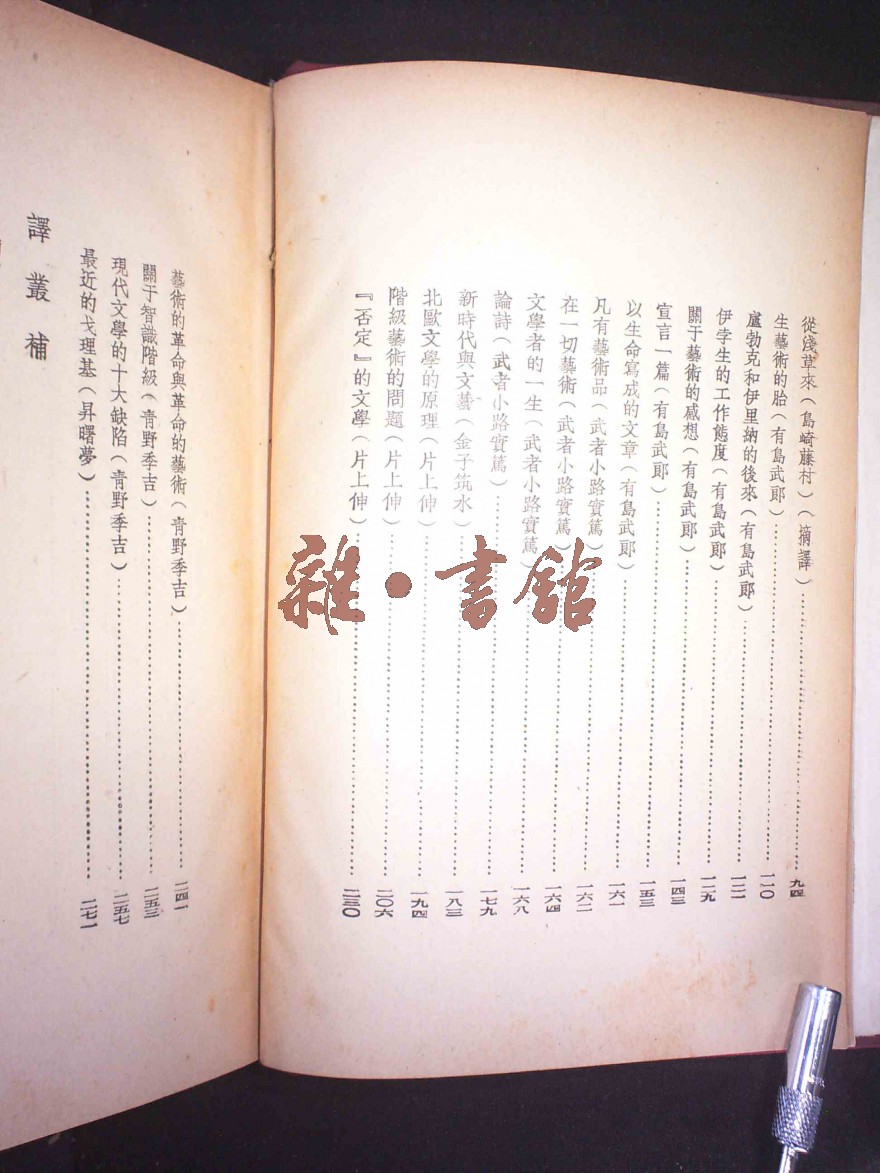 從淺草來(島崎藤村)(摘譯)……九四
生藝術的胎(有島武郎)……一一〇
盧勃克和伊里納的後來(有島武郎)……一二一
伊孛生的工作態度(有島武郎)……一二九
關于藝術的感想(有島武郎)……一四三
宣言一篇(有島武郎)……一五三
以生命寫成的文章(有島武郎)……一六一
凡有藝術品(武者小路實篤)……一六二
在一切藝術(武者小路實篤)……一六四
文學者的一生(武者小路實篤)……一六八
論詩(武者小路實篤)……一七九
新時代與文藝(金子筑水)……一八三
北歐文學的原理(片上伸)……一九四
階級藝術的問題(片上伸)……二〇六
『否定』的文學(片上伸)……二三〇
藝術的革命與革命的藝術(青野季吉)……二四一
關于智識階級(青野季吉)……二五三
現代文學的十大缺陷(青野季吉)……二五七
最近的戈理基(昇曙夢)……二七一
譯叢補
雜·書館